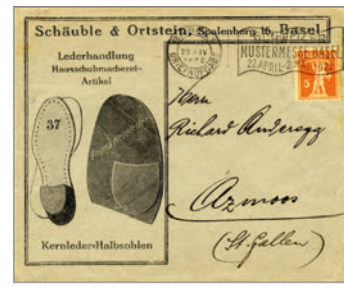 Schäuble & Ortstein, Spalenberg 16, Basel
Lederhandlung
Hausschuhmacherei-
Artikel
37
Kernleder-Halbsohlen
MUSTERMESSE BASEL
22. APRIL-2.
5
Herrn
Richard Anderegg
Azmoos
(St. Gallen)